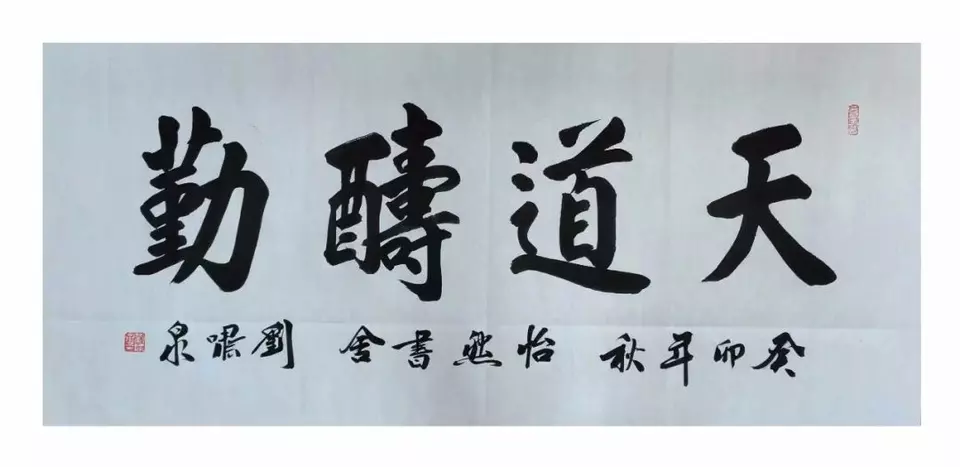 天道醻勤
癸卯年秋 怡然書舍 劉嘯泉